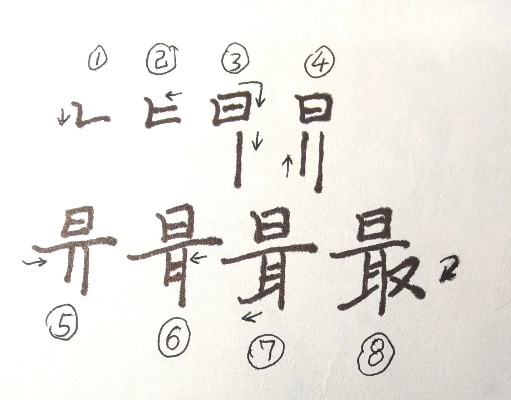 ① ② ③ ④
⑤ ⑥ ⑦ ⑧
最